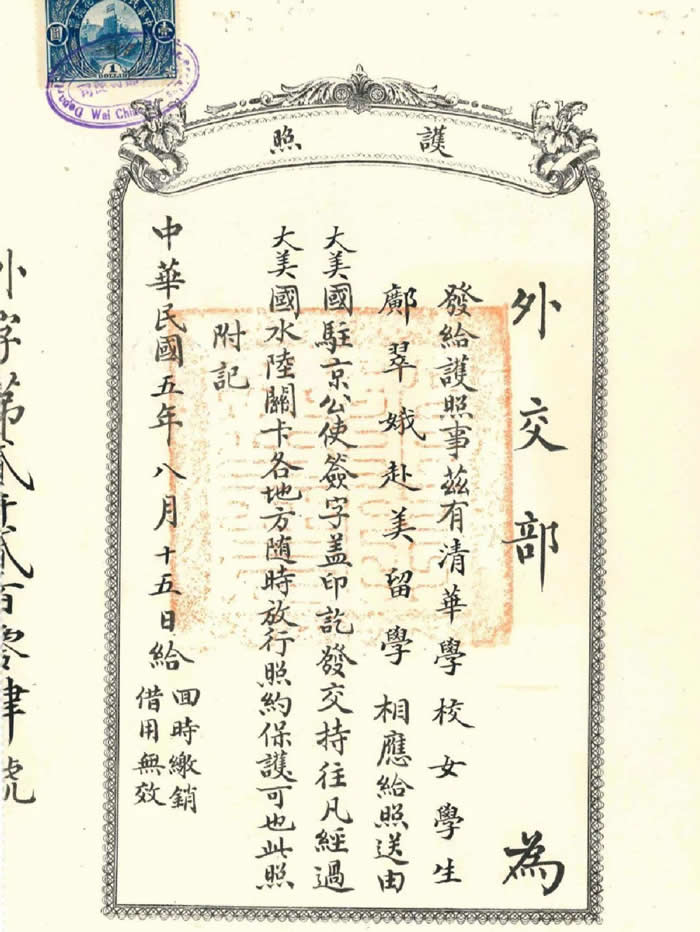 護照
外交部為
發給護照事茲有清華學校女學生
鄺翠娥赴美留學相應給照送由
大美國駐京公使簽字盖印訖發交持往凡經過
大美國水陸關卡各地方随時放行照約保護可也此照
附記
中華民國五年八月十五日給
囬時繳銷
借用無效
外字第貳千貳百零肆號
壹圓
1
DOLLAR
Wai Chia